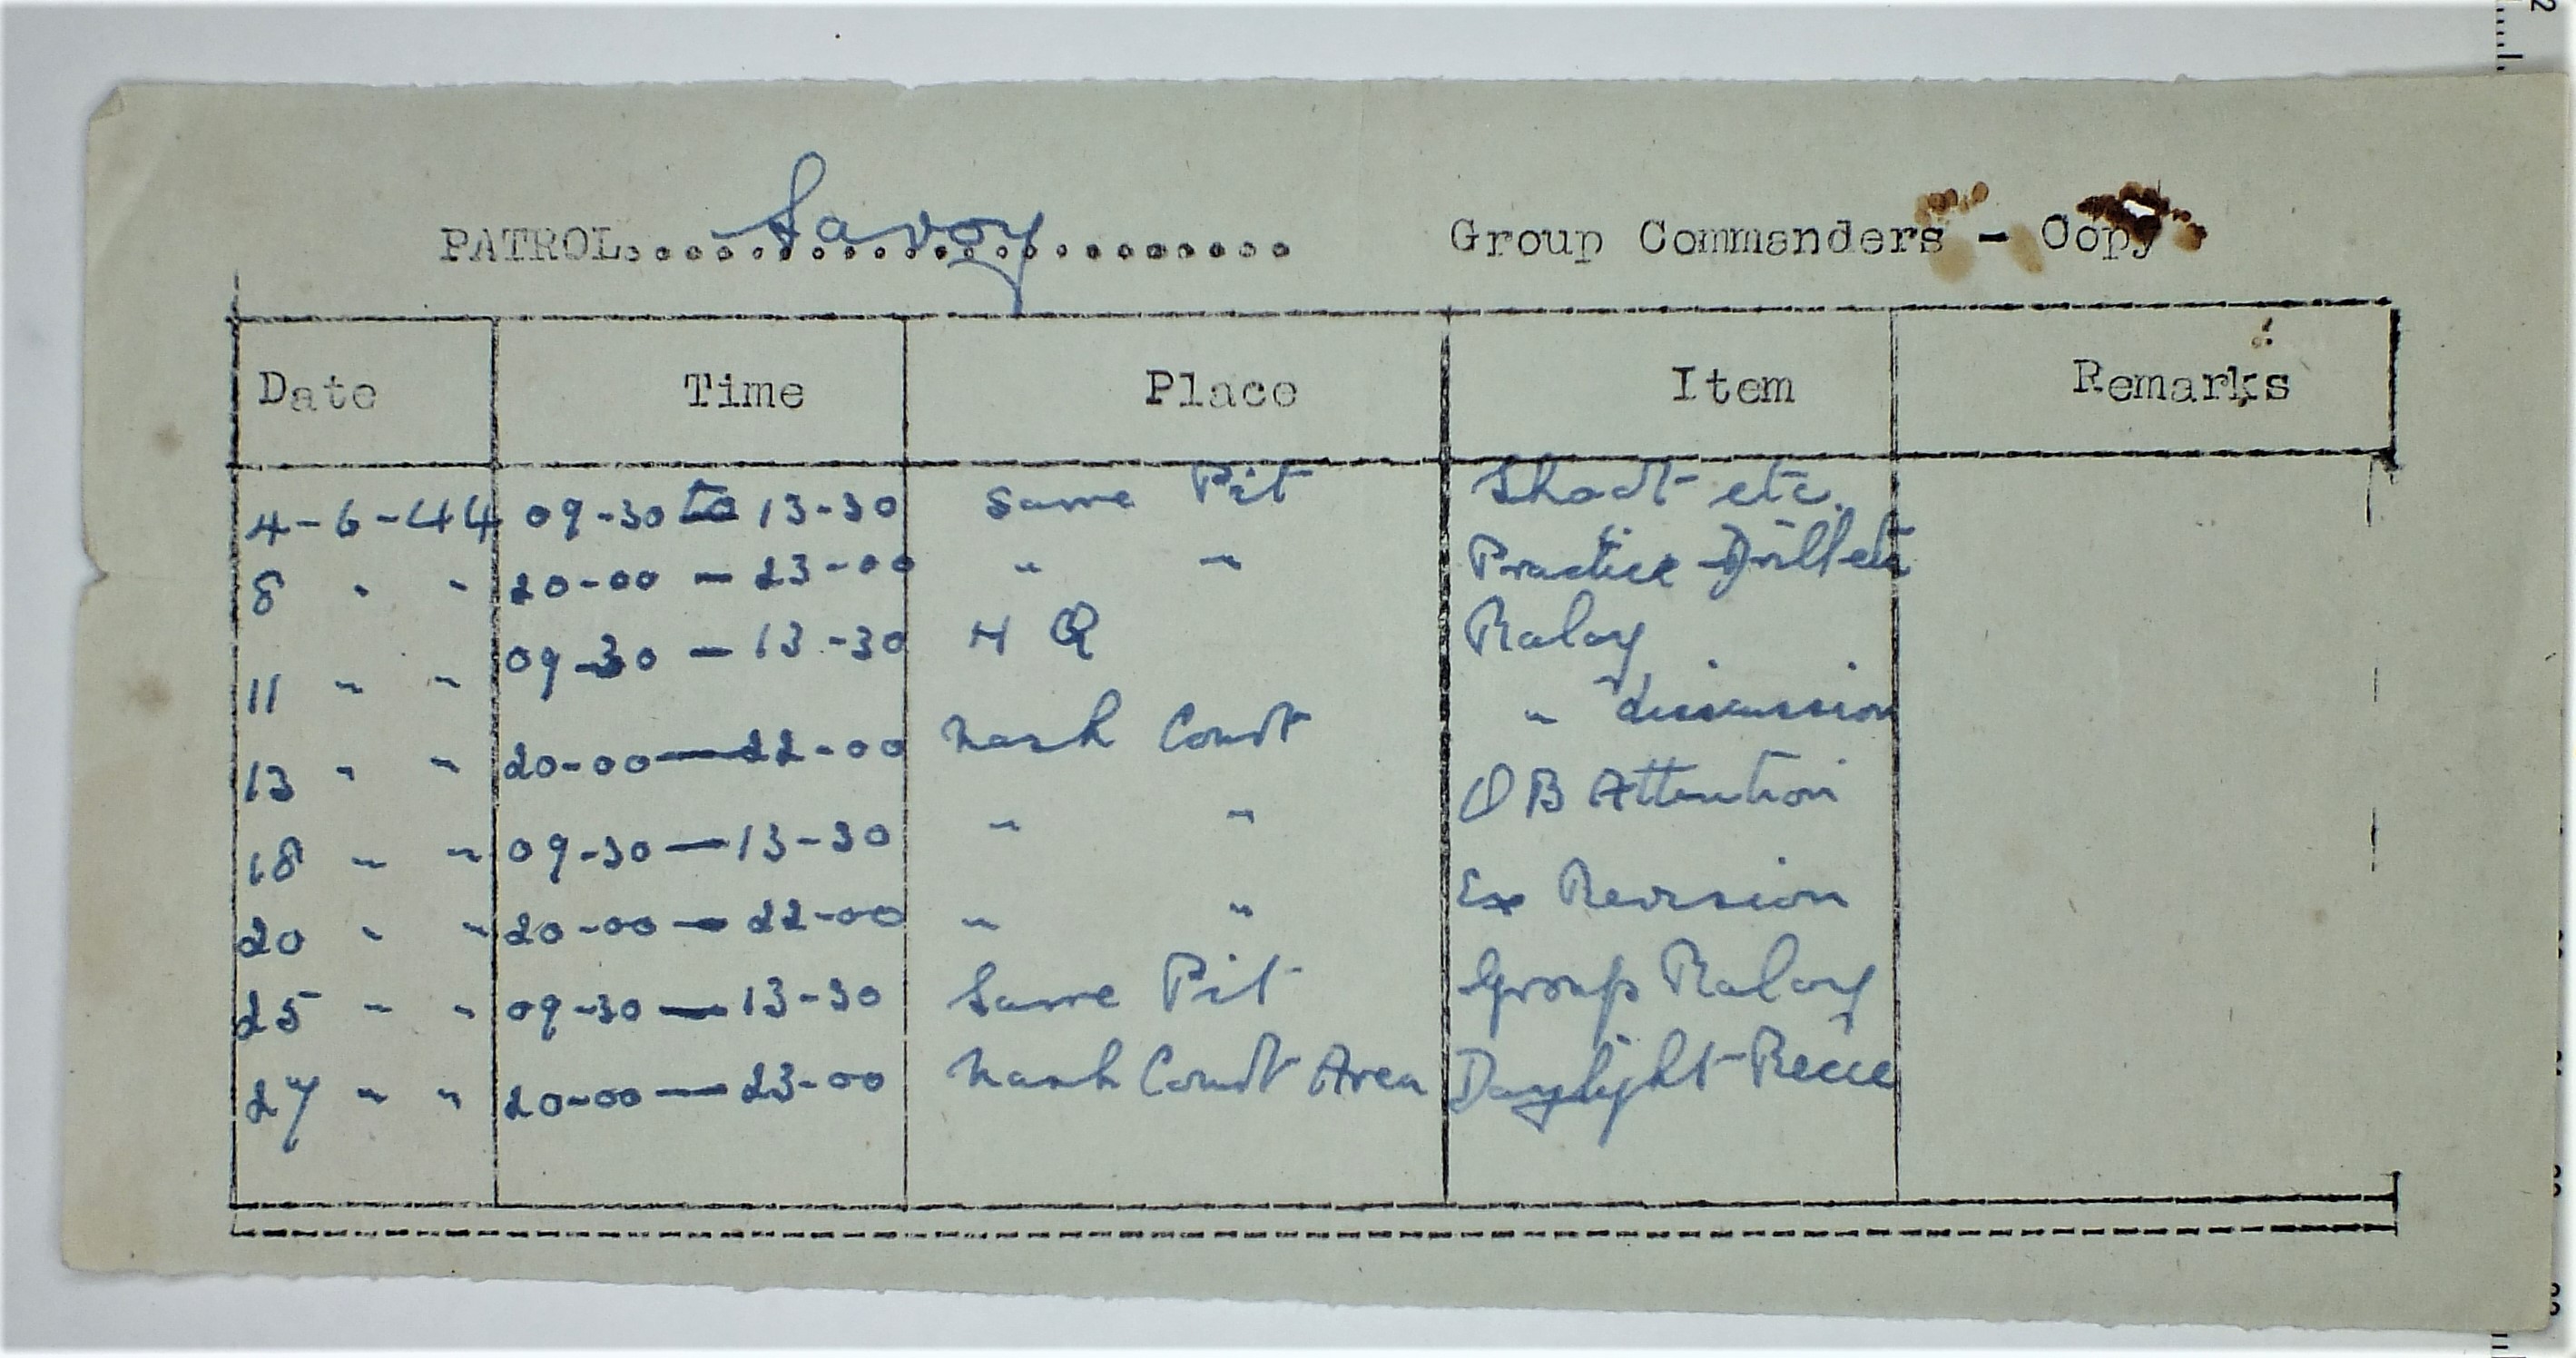 PATROL.... Savoy .......... Group Commanders - Copy
Date Time Place Item Remarks
4-6-44 09-30 to 13-30 Same Pit Shoot etc.
8 " " 20-00 — 23-00 " " Practice Drill etc
11 " " 09-30 — 13-30 H Q Raley
13 " " 20-00 — 22-00 Nash Court " discussion
18 " " 09-30 — 13-30 " " O B Attention
20 " " 20-00 — 22-00 " " Ex Revision
25 " " 09-30 — 13-30 Same Pit Group Raley
27 " " 20-00 — 23-00 Nash Court Area Daylight Recce